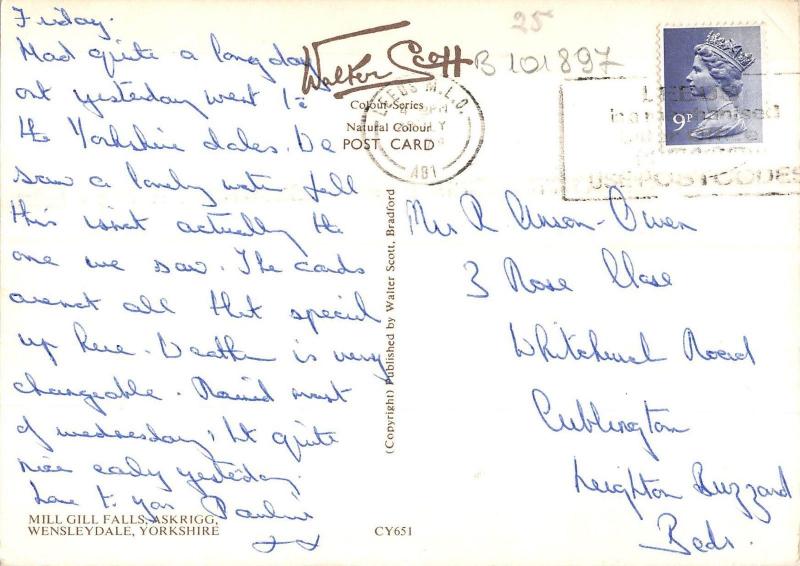 Friday.
Had quite a long day
out yesterday went to
the Yorkshire dales. We
saw a lovely water fall
this isnt actually the
one we saw. The cards
arenot all that special
up here. Weather is very
changeable. Rained most
of wednesday, but quite
nice early yesterday.
Love to you Pauline
x x
MILL GILL FALLS, ASKRIGG,
WENSLEYDALE, YORKSHIRE
CY651
Walter Scott
Colour Series
Natural Colour
POST CARD
(Copyright) Published by Walter Scott, Bradford
25
B 101897
LEEDS M.L.O.
AB1
9P
LEEDS
is a mechanised
USE POSTCODES
Mrs R Anson-Owen
3 Rose Close
Whitchurch Road
Cublington
Leighton Buzzard
Beds.